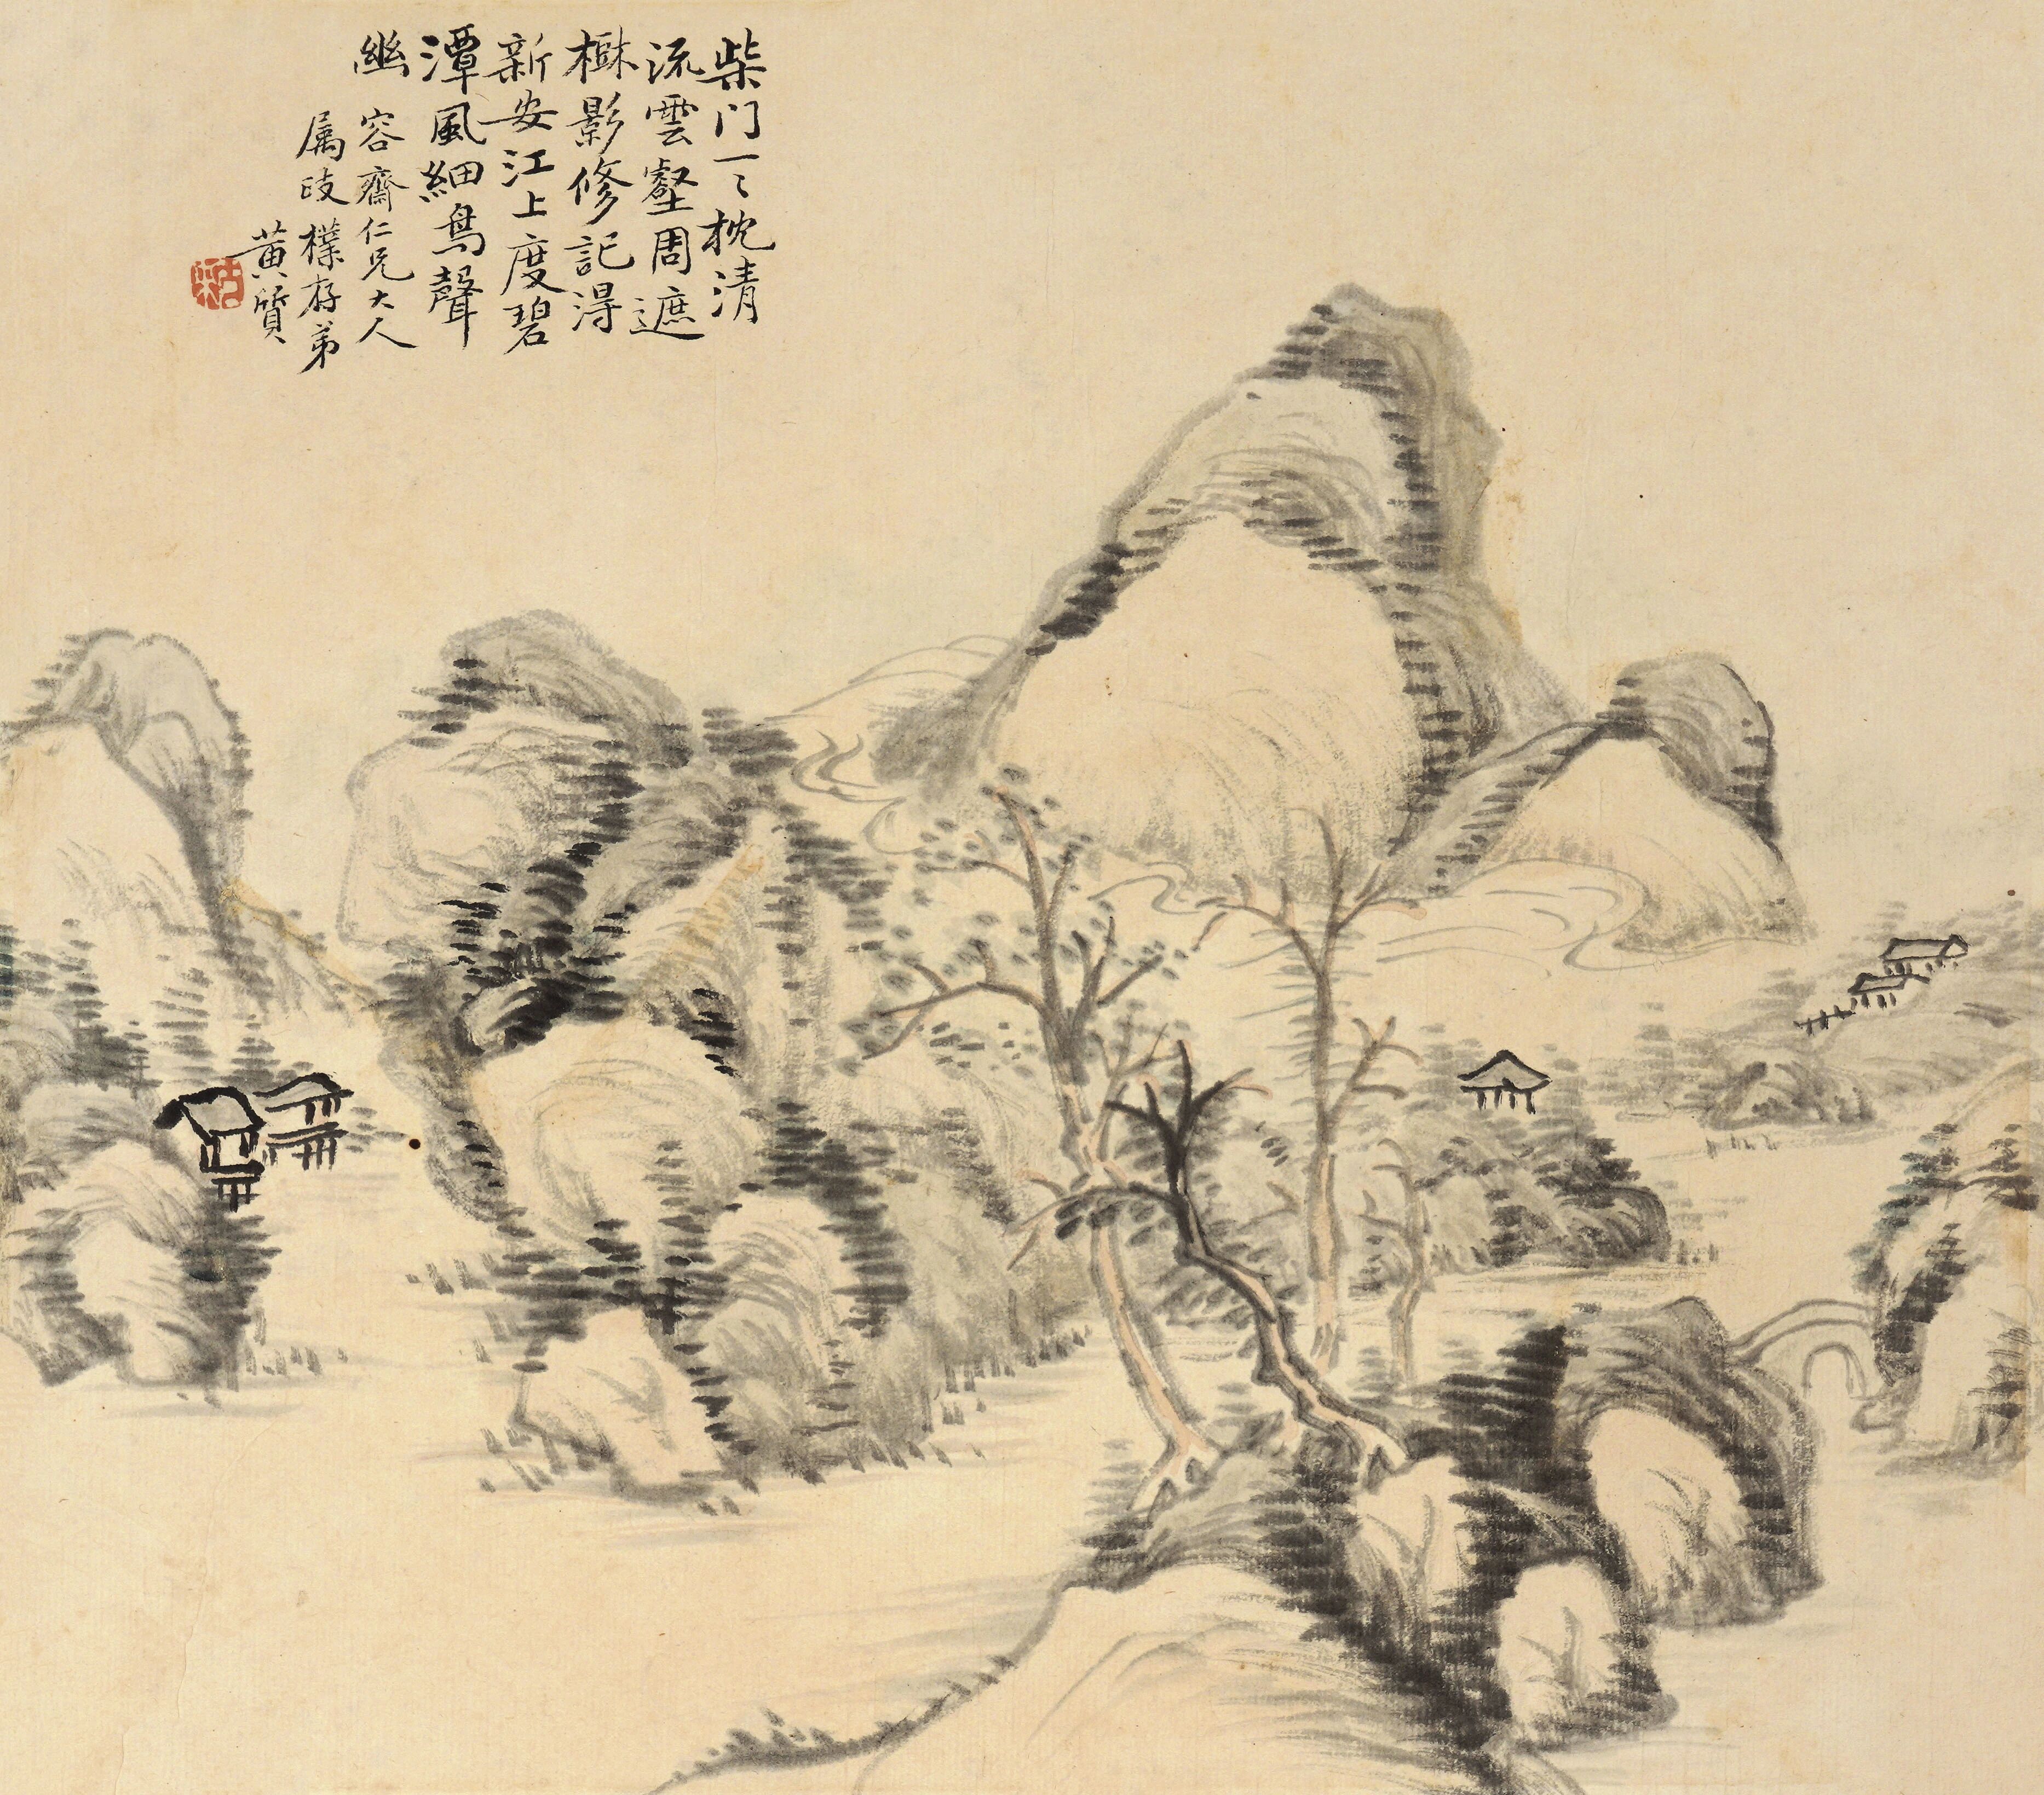 柴门一〻枕清
流雲壑周遮
樹影修記得
新安江上度碧
潭風細鳥聲
幽 容齋仁兄大人
属政 樸存弟
黄質